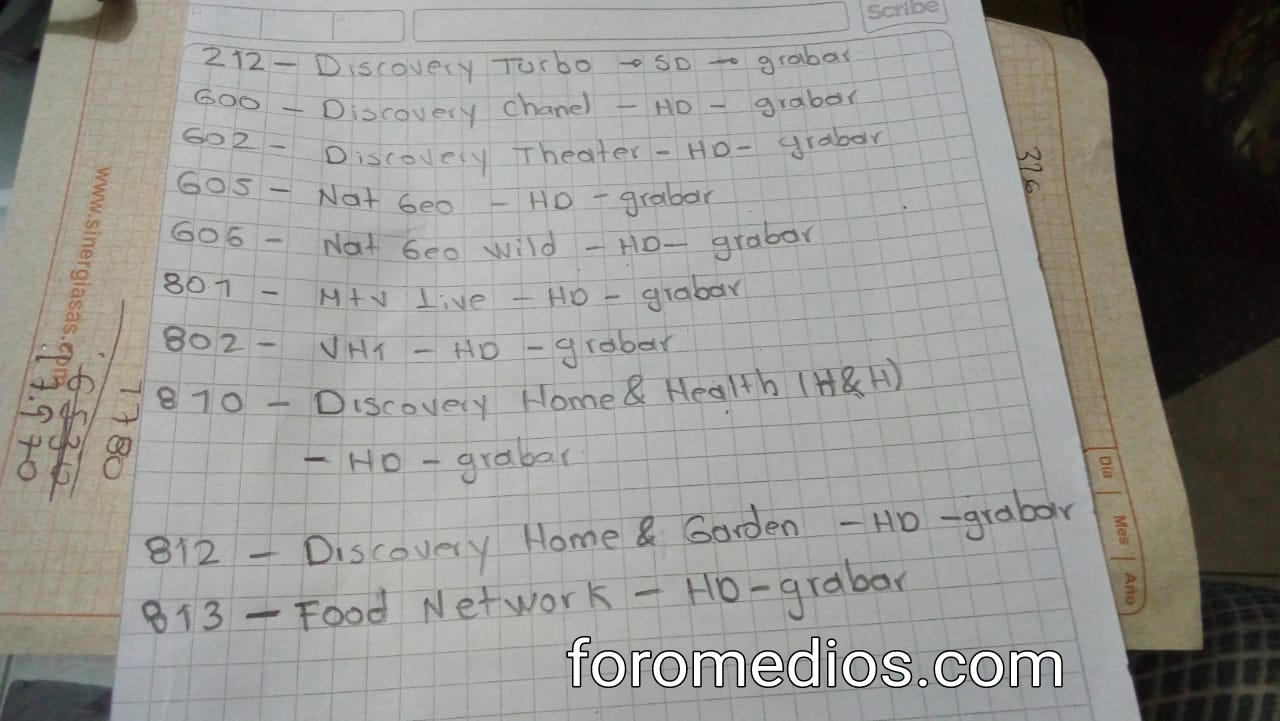 scribe
212 - Discovery Turbo - SD - grabar
600 - Discovery chanel - HD - grabar
602 - Discovery Theater - HD - grabar
605 - Nat Geo - HD - grabar
606 - Nat Geo wild - HD - grabar
801 - Mtv Live - HD - grabar
802 - VH1 - HD - grabar
810 - Discovery Home & Health (H&H)
- HD - grabar
812 - Discovery Home & Garden - HD - grabar
813 - Food Network - HD - grabar
326
Dia Mes Año
www.sinergiasas.com
1780
17.970
foromedios.com